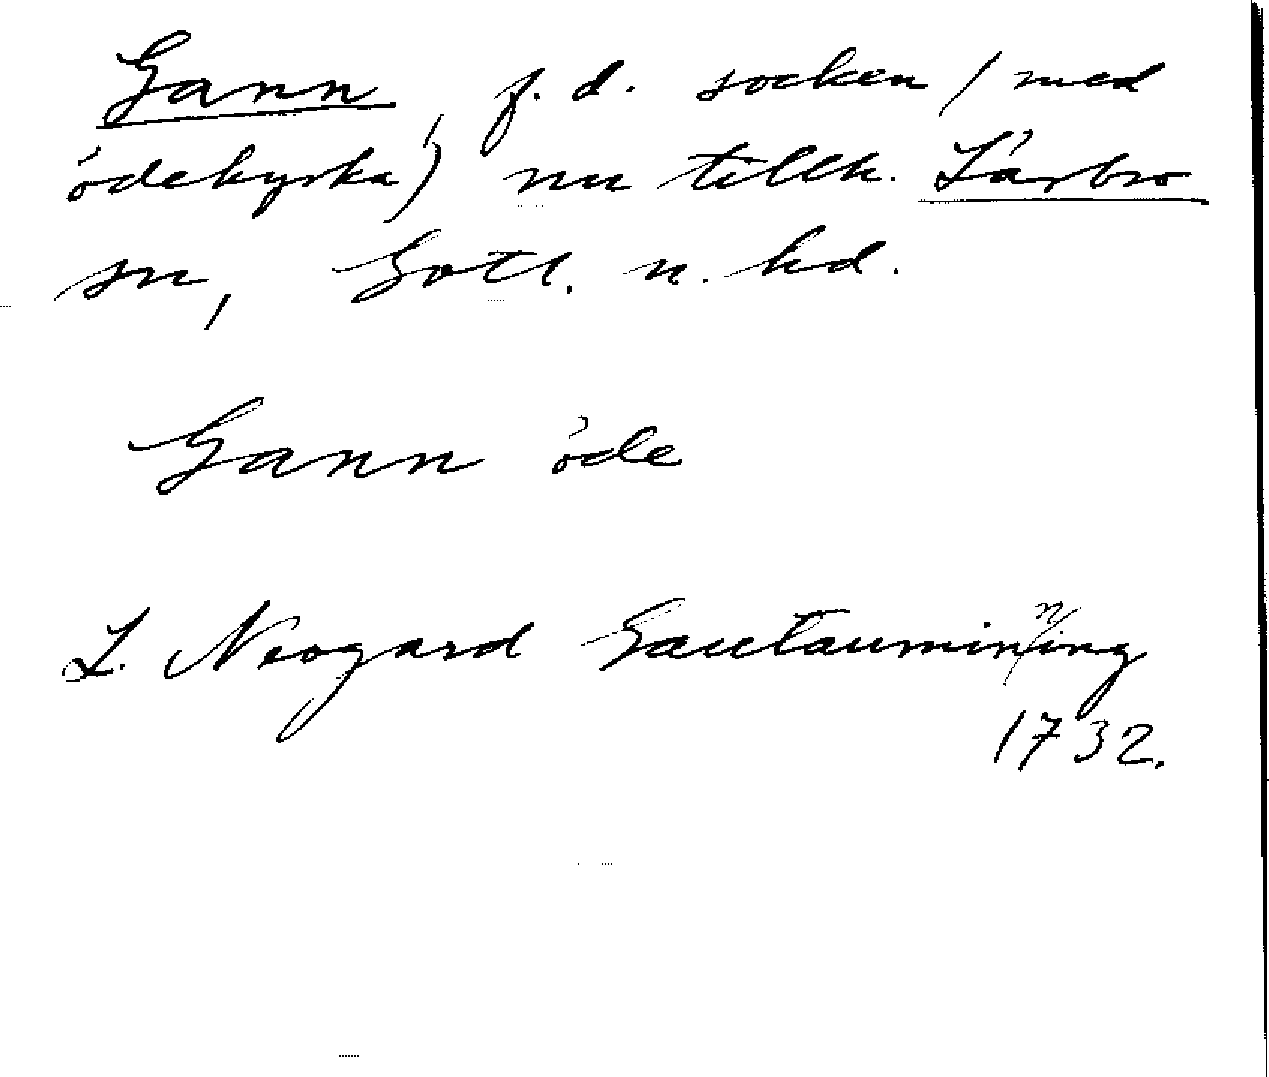 Gann f.d. socken (med
ödekyrka) nu tillh. Lärbro
sn, Gotl. n. hd.
Gann öde
L. Neogard Gautauminning
1732.